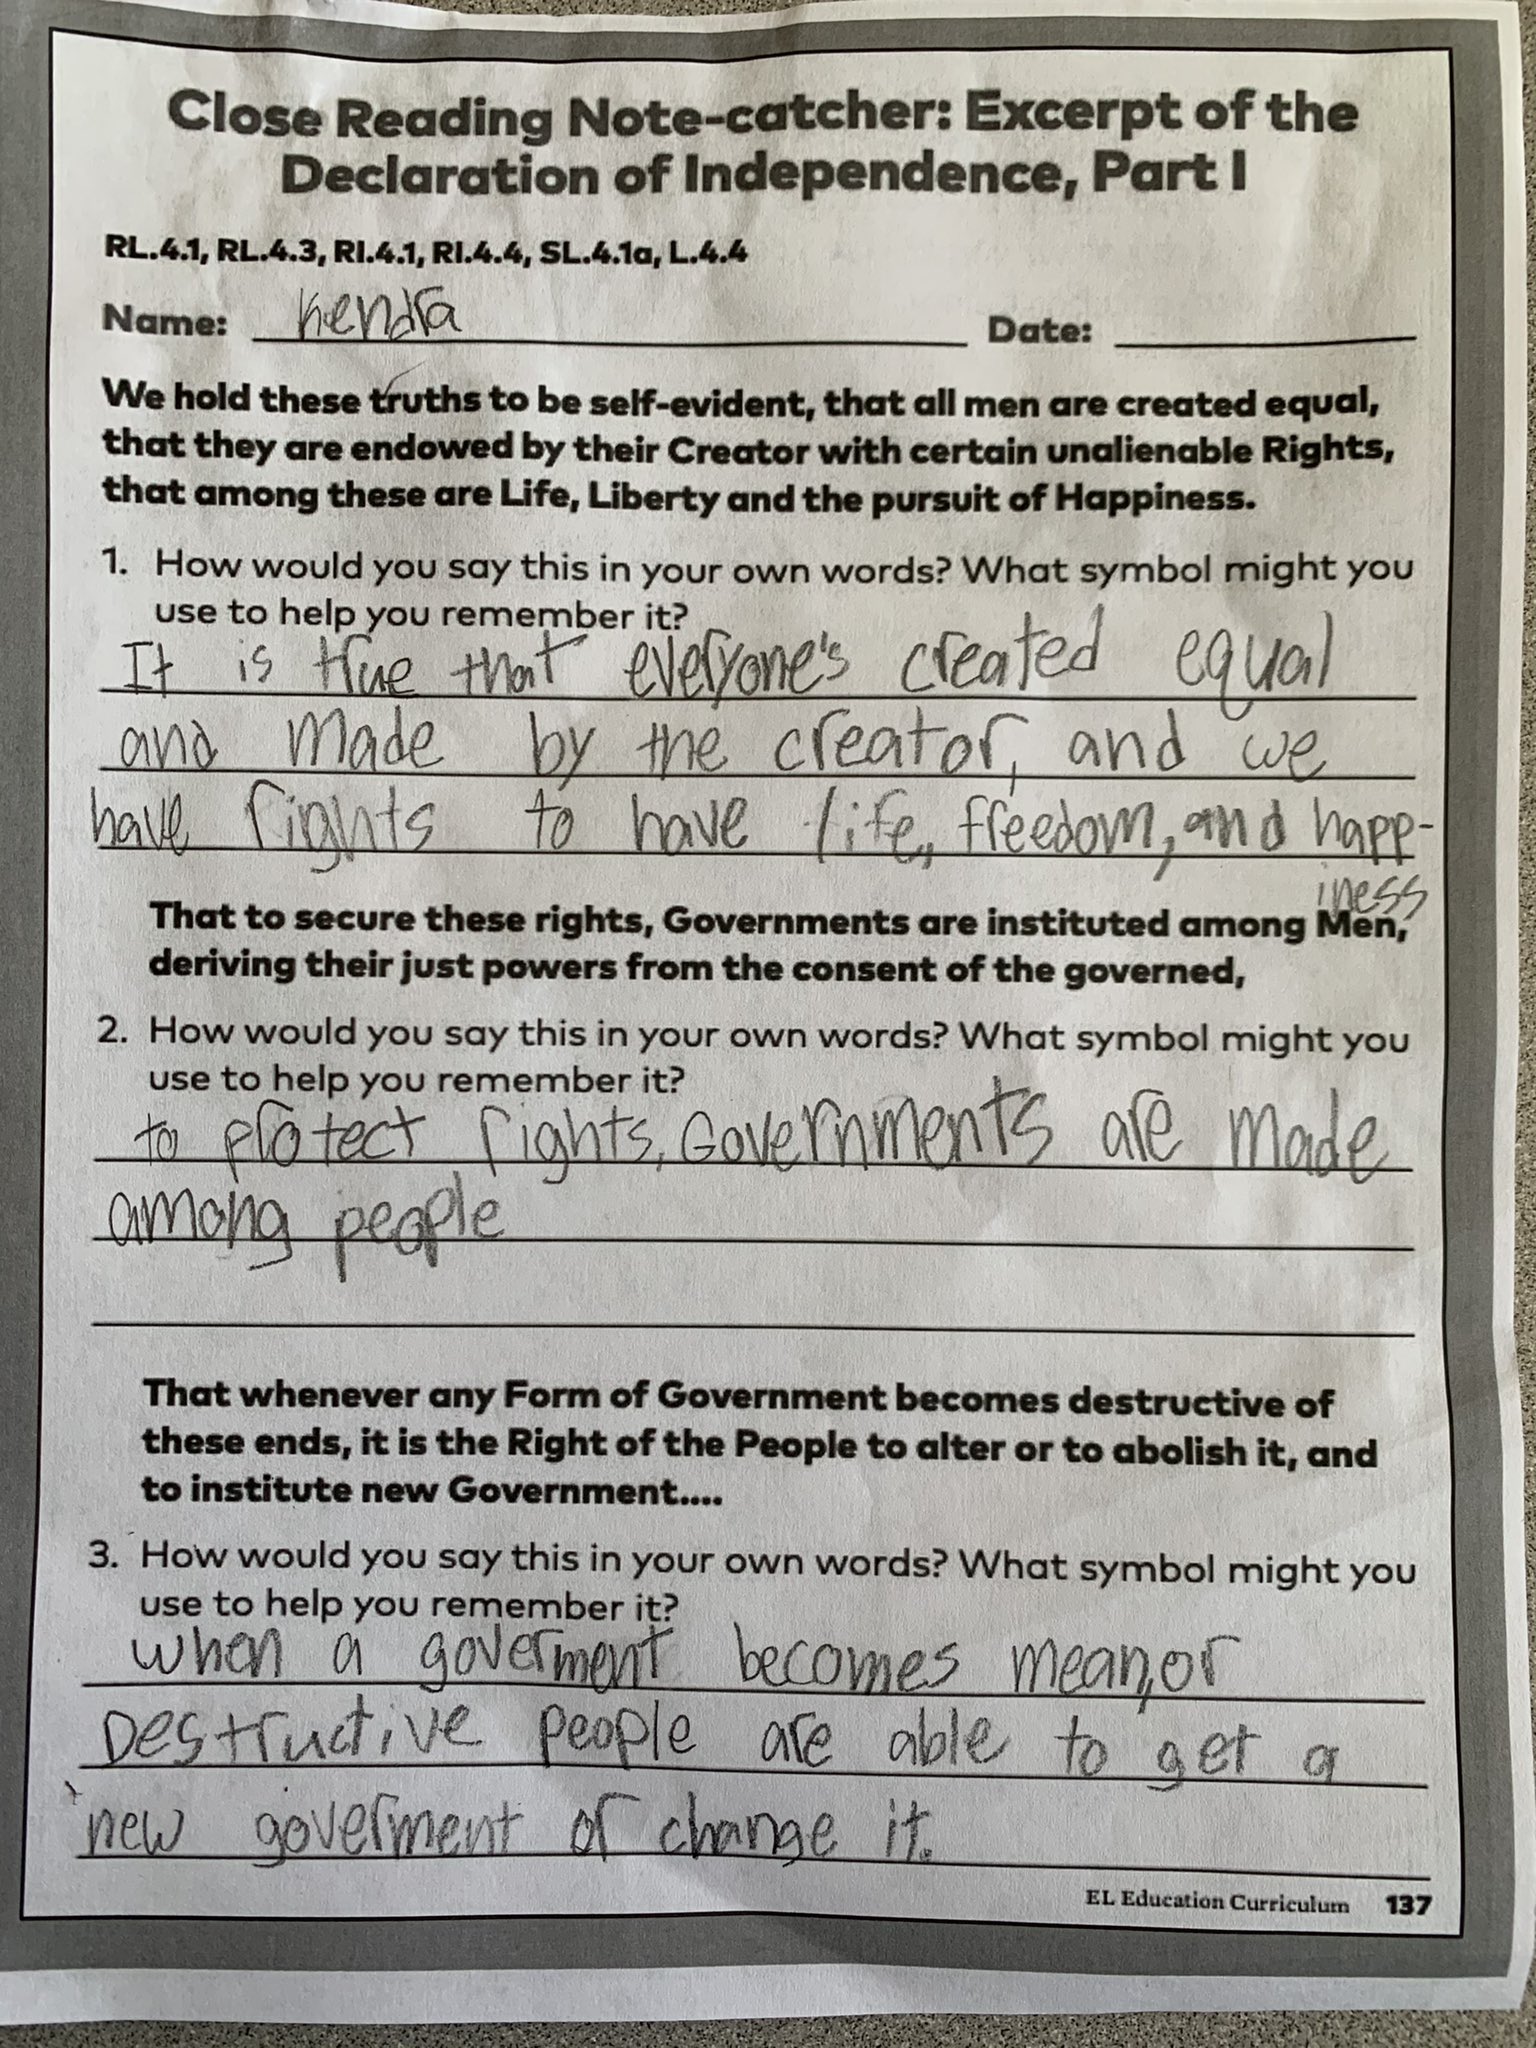 Close Reading Note-catcher: Excerpt of the
Declaration of Independence, Part I
RL.4.1, RL.4.3, RI.4.1, RI.4.4, SL.4.1a, L.4.4
Name: Kendra Date:
We hold these truths to be self-evident, that all men are created equal,
that they are endowed by their Creator with certain unalienable Rights,
that among these are Life, Liberty and the pursuit of Happiness.
1. How would you say this in your own words? What symbol might you
use to help you remember it?
It is true that everyone's created equal
and made by the creator, and we
have rights to have life, freedom, and happ-
iness
That to secure these rights, Governments are instituted among Men,
deriving their just powers from the consent of the governed,
2. How would you say this in your own words? What symbol might you
use to help you remember it?
to protect rights, Governments are made
among people
That whenever any Form of Government becomes destructive of
these ends, it is the Right of the People to alter or to abolish it, and
to institute new Government....
3. How would you say this in your own words? What symbol might you
use to help you remember it?
when a goverment becomes mean, or
Destructive people are able to get a
new goverment or change it.
EL Education Curriculum 137